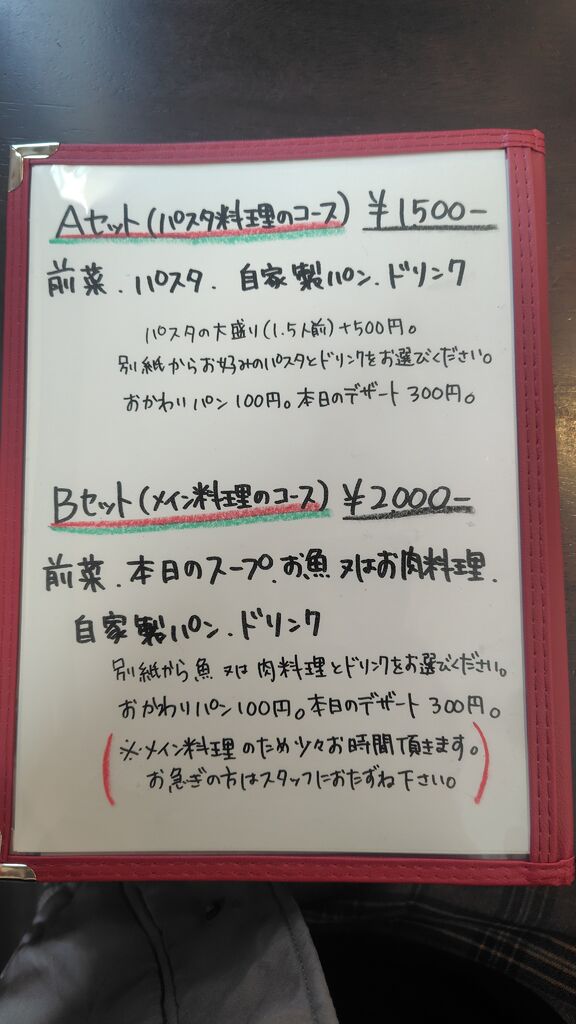 Aセット(パスタ料理のコース) ¥1500-
前菜.パスタ.自家製パン.ドリンク
パスタの大盛り(1.5人前)+500円。
別紙からお好みのパスタとドリンクをお選びください。
おかわりパン100円。本日のデザート300円。
Bセット(メイン料理のコース) ¥2000-
前菜.本日のスープ.お魚又はお肉料理.
自家製パン.ドリンク
別紙から魚又は肉料理とドリンクをお選びください。
おかわりパン100円。本日のデザート300円。
(※メイン料理のため少々お時間頂きます。
お急ぎの方はスタッフにおたずね下さい。)